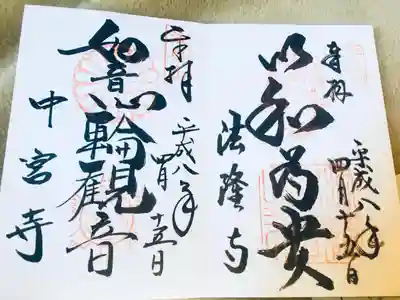 奉拝
平成八年
四月十五日
以和為貴
法隆寺
奉拝
平成八年
四月十五日
如意輪観音
中宮寺